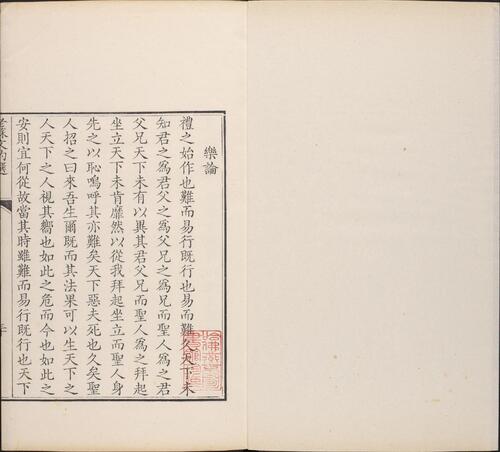 樂論
禮之始作也難而易行既行也易而難久天下未
知君之爲君父之爲父兄之爲兄而聖人爲之君
父兄天下未有以異其君父兄而聖人爲之拜起
坐立天下未肯靡然以從我拜起坐立而聖人身
先之以恥嗚呼其亦難矣天下惡夫死也久矣聖
人招之曰來吾生爾既而其法果可以生天下之
人天下之人視其嚮也如此之危而今也如此之
安則宜何從故當其時雖難而易行既行也天下